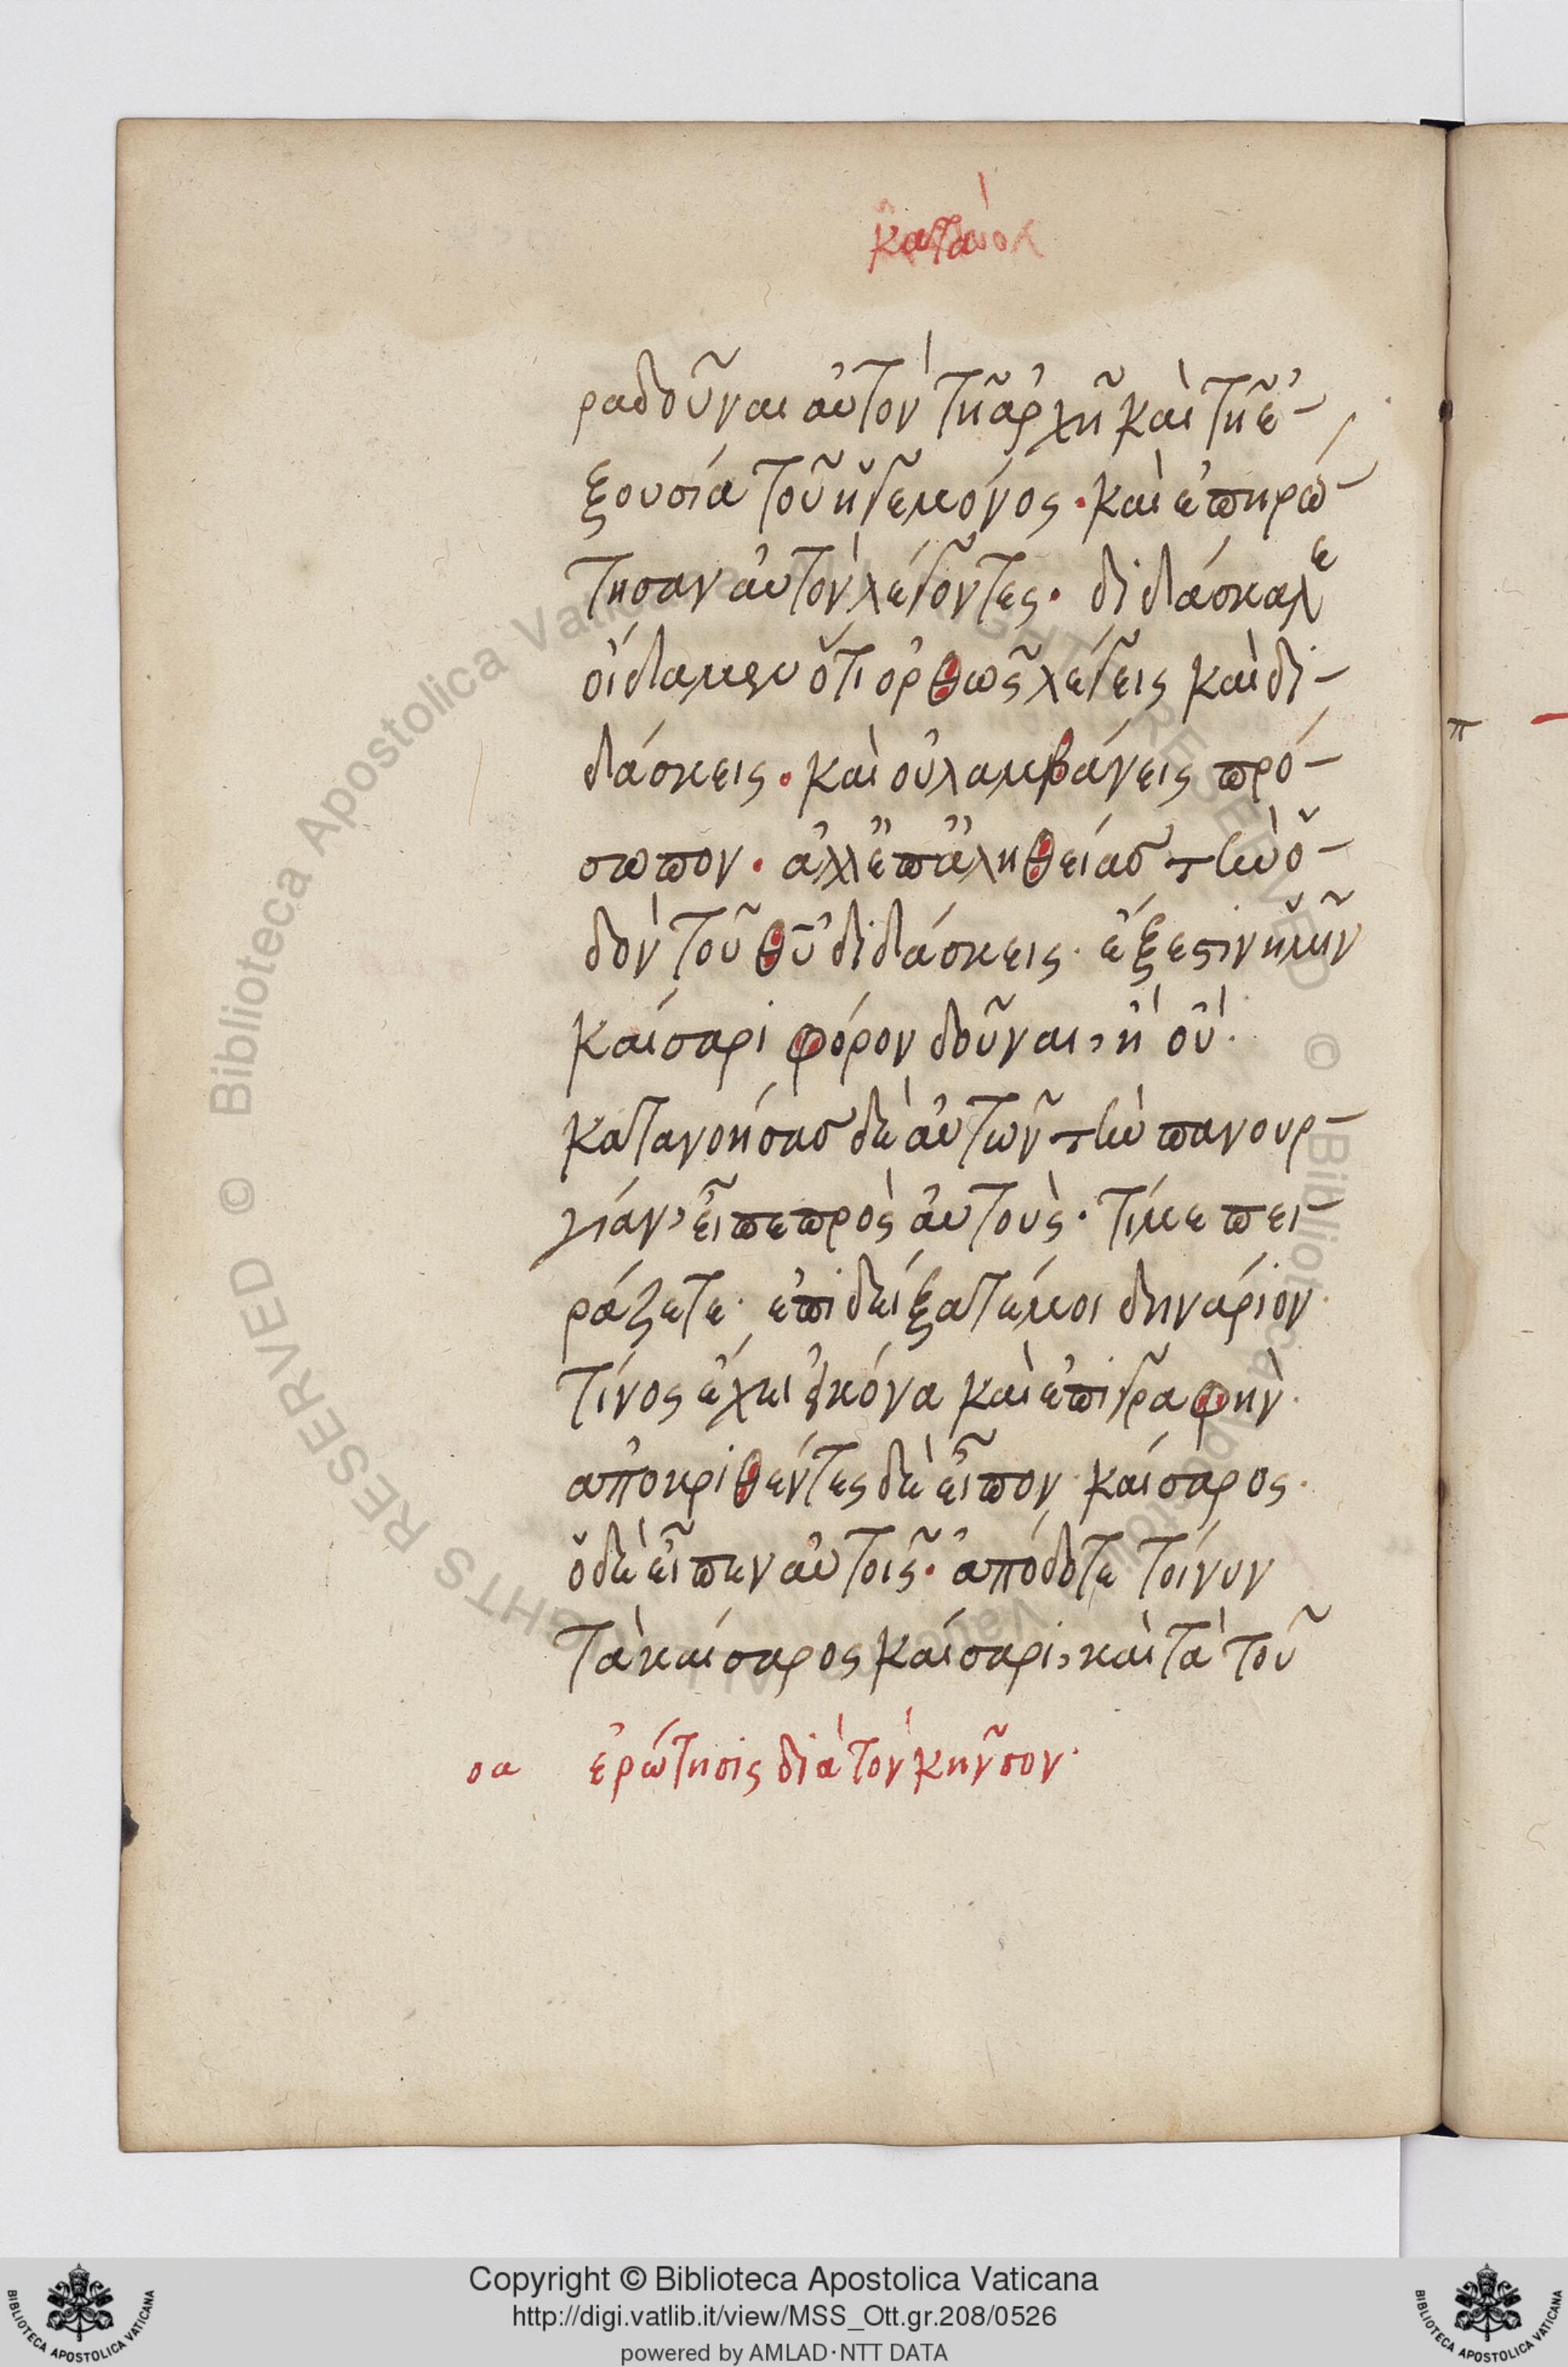 ραδοῦναι αὐτὸν τῆ ἀρχῆ καὶ τῆ ἐ-
ξουσία τοῦ ἡγεμόνος · καὶ ἐπηρώ-
τησαν αὐτὸν λέγοντες · διδάσκαλε
οἴδαμεν ὅτι ὀρθῶς λέγεις καὶ δι-
δάσκεις · καὶ οὐ λαμβάνεις πρό-
σωπον · ἀλλ' ἐπ' ἀληθείας τὴν ὁ-
δὸν τοῦ θ̅υ̅ διδάσκεις · ἔξεστιν ἡμῖν
καίσαρι φόρον δοῦναι, ἢ οὔ ·
κατανοήσας δὲ αὐτῶν τὴν πανουρ-
γίαν, εἶπε πρὸς αὐτούς · τί με πει-
ράζετε · ἐπιδείξατέ μοι δηνάριον ·
τίνος ἔχει εἰκόνα καὶ ἐπιγραφήν ·
ἀποκριθέντες δὲ εἶπον · καίσαρος ·
ὁ δὲ εἶπεν αὐτοῖς · ἀπόδοτε τοίνυν
τὰ καίσαρος καίσαρι, καὶ τὰ τοῦ
οα ἐρώτησις διὰ τὸν κῆνσον ·
π
© Biblioteca Apostolica Vaticana ALL RIGHTS RESERVED
Copyright © Biblioteca Apostolica Vaticana
http://digi.vatlib.it/view/MSS_Ott.gr.208/0526
powered by AMLAD·NTT DATA
BIBLIOTECA APOSTOLICA VATICANA
BIBLIOTECA APOSTOLICA VATICANA